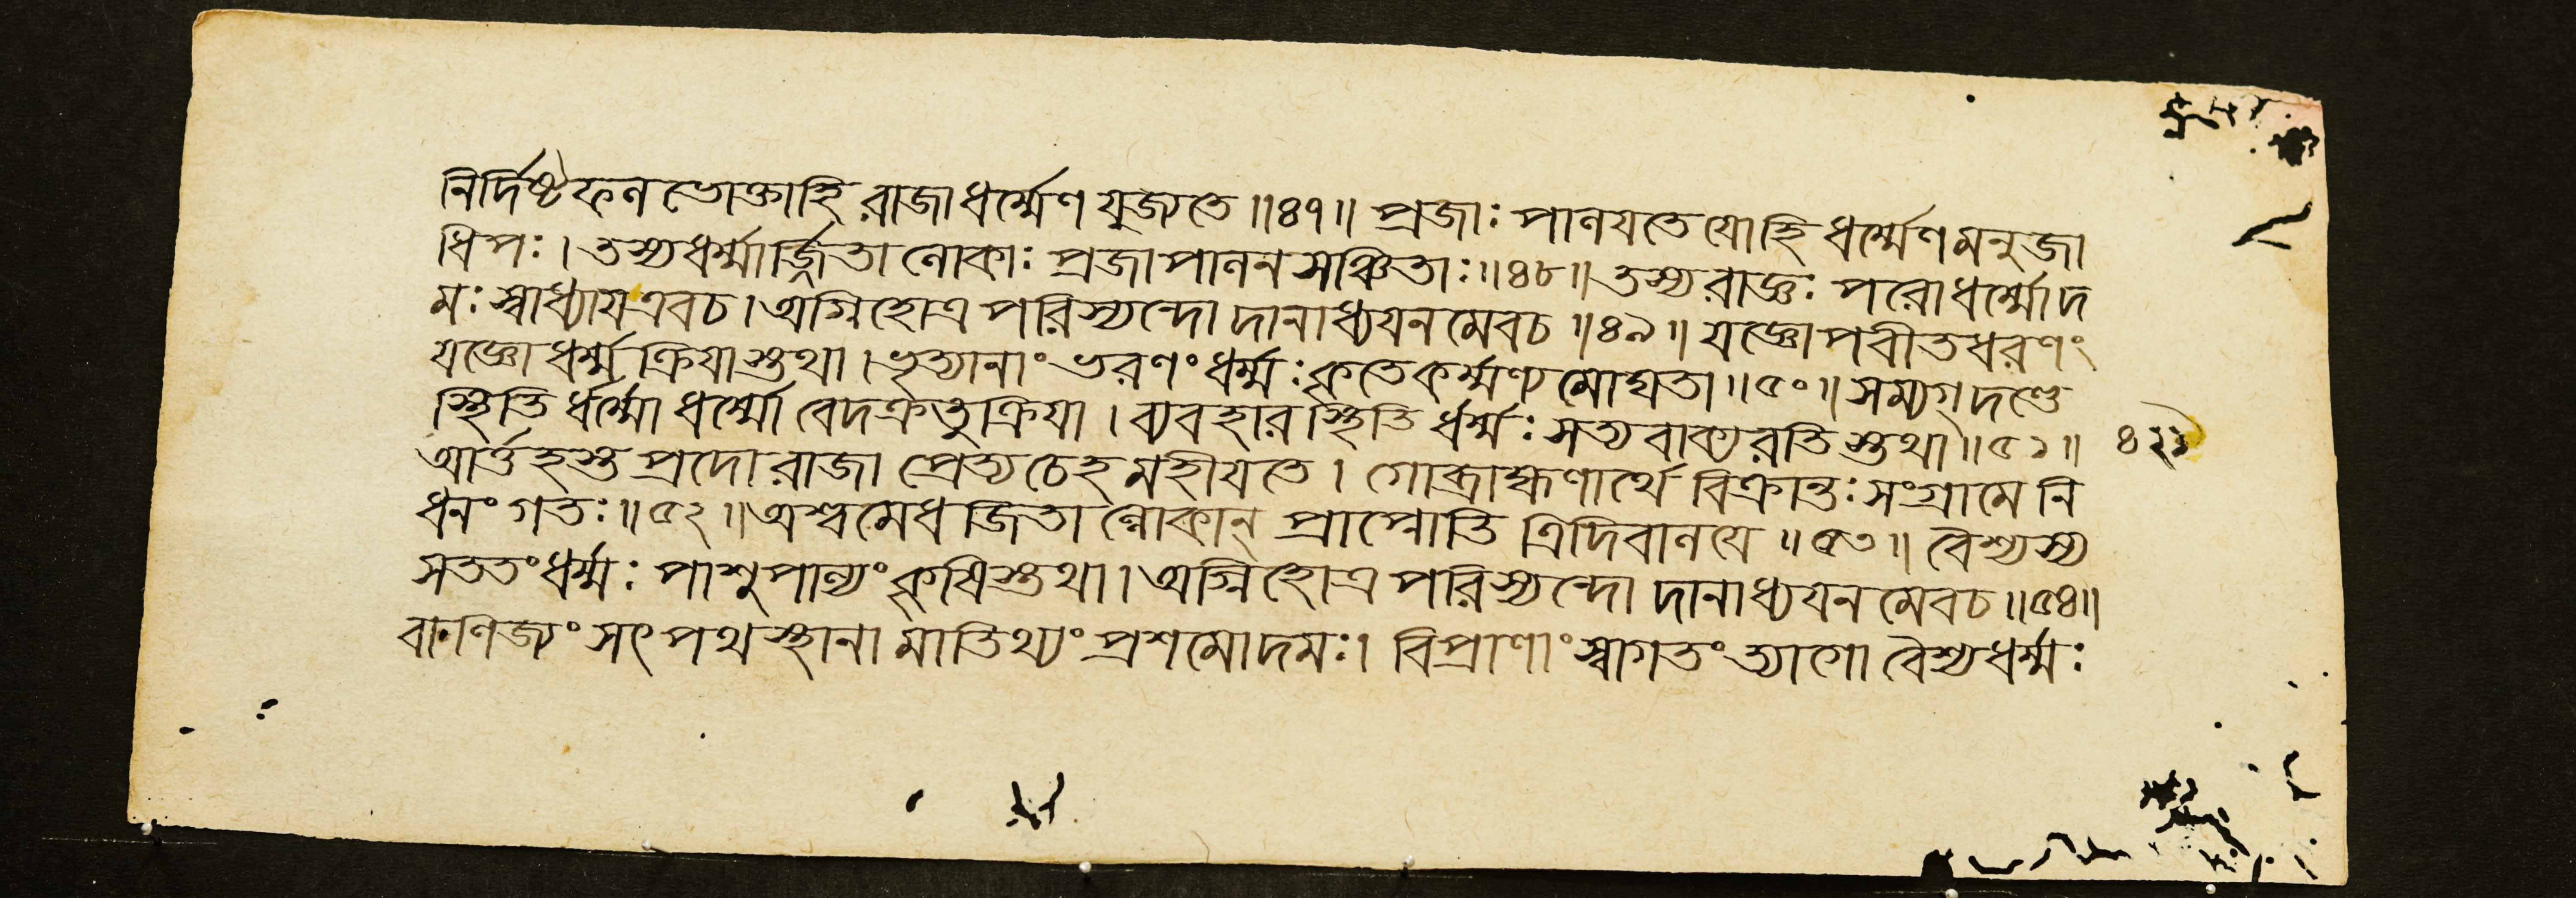 নির্দিষ্টফল ভোক্তাহি রাজাধর্ম্মেণ যুজ্যতে ॥৪৭॥ প্রজাঃ পালযতে যোহি ধর্ম্মেণ মনুজা
ধিপঃ। তস্যধর্ম্মার্জ্জিতা লোকাঃ প্রজাপালন সঞ্চিতাঃ॥৪৮॥ তস্য রাজ্ঞঃ পরোধর্ম্মোদ
মঃ স্বাধ্যায এবচ। অগ্নিহোত্র পরিস্যন্দো দানাধ্যযন মেবচ ॥৪৯॥ যজ্ঞোপবীতধরণং
যজ্ঞো ধর্ম্ম ক্রিযাস্তথা। ভৃত্যানাং ভরণং ধর্ম্মঃ কৃতেকর্ম্মণ্য মোঘতা॥৫০॥ সম্যগ্ দণ্ডে
স্থিতি র্ধর্ম্মো ধর্ম্মো বেদক্রতুক্রিযা। ব্যবহার স্থিতি র্ধর্ম্মঃ সত্যবাক্য রতি স্তথা॥৫১॥ ৪২১
আর্ত্তহস্ত প্রদো রাজা প্রেত্য চেহ মহীযতে। গোব্রাহ্মণার্থে বিক্রান্তঃ সংগ্রামে নি
ধনং গতঃ॥৫২॥ অশ্বমেধ জিতা ল্লোকান্ প্রাপ্নোতি ত্রিদিবালযে ॥৫৩॥ বৈশ্যস্য
সততং ধর্ম্মঃ পাশুপাল্যং কৃষিস্তথা। অগ্নিহোত্র পরিস্যন্দো দানাধ্যযন মেবচ॥৫৪॥
বাণিজ্যং সৎপথ স্থানা মাতিথ্যং প্রশমোদমঃ। বিপ্রাণাং স্বাগতং ত্যাগো বৈশ্যধর্ম্মঃ